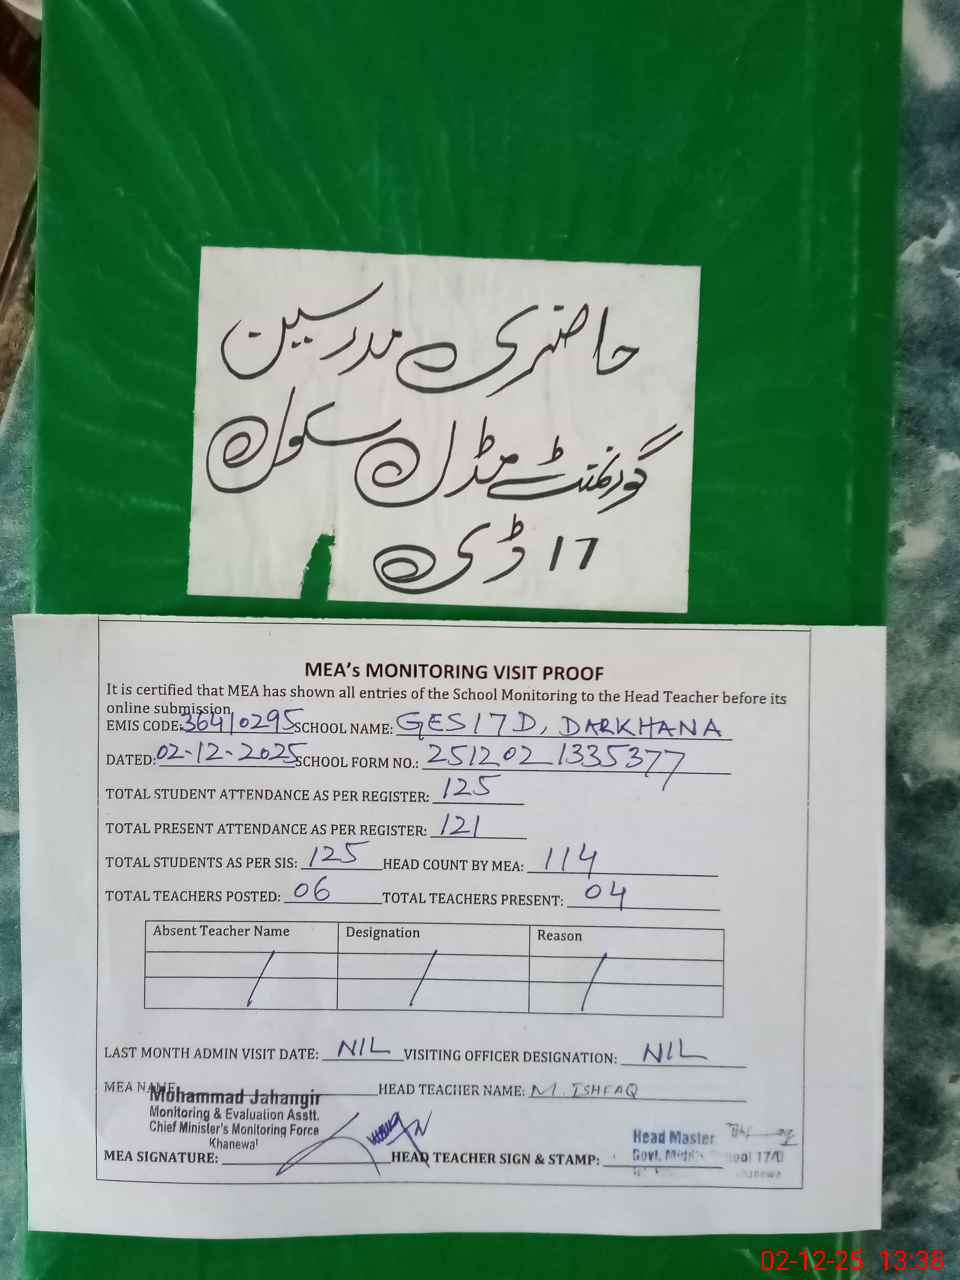 حاضری مدرسین
گورنمنٹ مڈل سکول
17 ڈی
MEA's MONITORING VISIT PROOF
It is certified that MEA has shown all entries of the School Monitoring to the Head Teacher before its
online submission.
EMIS CODE: 36410295 SCHOOL NAME: GES 17 D, DARKHANA
DATED: 02-12-2025 SCHOOL FORM NO.: 251202 1335377
TOTAL STUDENT ATTENDANCE AS PER REGISTER: 125
TOTAL PRESENT ATTENDANCE AS PER REGISTER: 121
TOTAL STUDENTS AS PER SIS: 125 HEAD COUNT BY MEA: 114
TOTAL TEACHERS POSTED: 06 TOTAL TEACHERS PRESENT: 04
Absent Teacher Name Designation Reason
/ / /
LAST MONTH ADMIN VISIT DATE: NIL VISITING OFFICER DESIGNATION: NIL
MEA NAME: HEAD TEACHER NAME: M. ISHFAQ
Mohammad Jahangir
Monitoring & Evaluation Asstt.
Chief Minister's Monitoring Force
Khanewal
MEA SIGNATURE: HEAD TEACHER SIGN & STAMP:
Head Master
Govt. Middle School 17/D
Khanewal
02-12-25 13:38